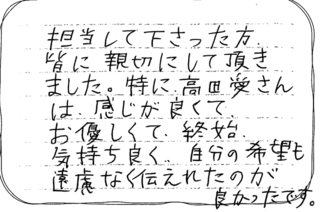 担当して下さった方
皆に 親切にして頂き
ました。特に 高田愛さん
は、感じが良くて
お優しくて、終始
気持ち良く、自分の希望も
遠慮なく伝えれたのが
良かったです。